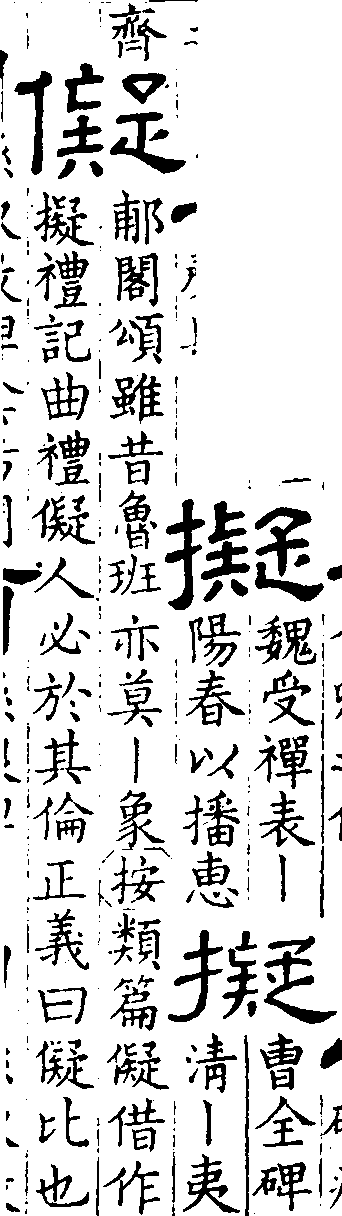 擬
魏受禪表丨
陽春以播恵
擬
曹全碑
清丨夷
齊
儗
郙閣頌雖昔魯班亦莫丨象按類篇儗借作
擬禮記曲禮儗人必於其倫正義曰儗比也